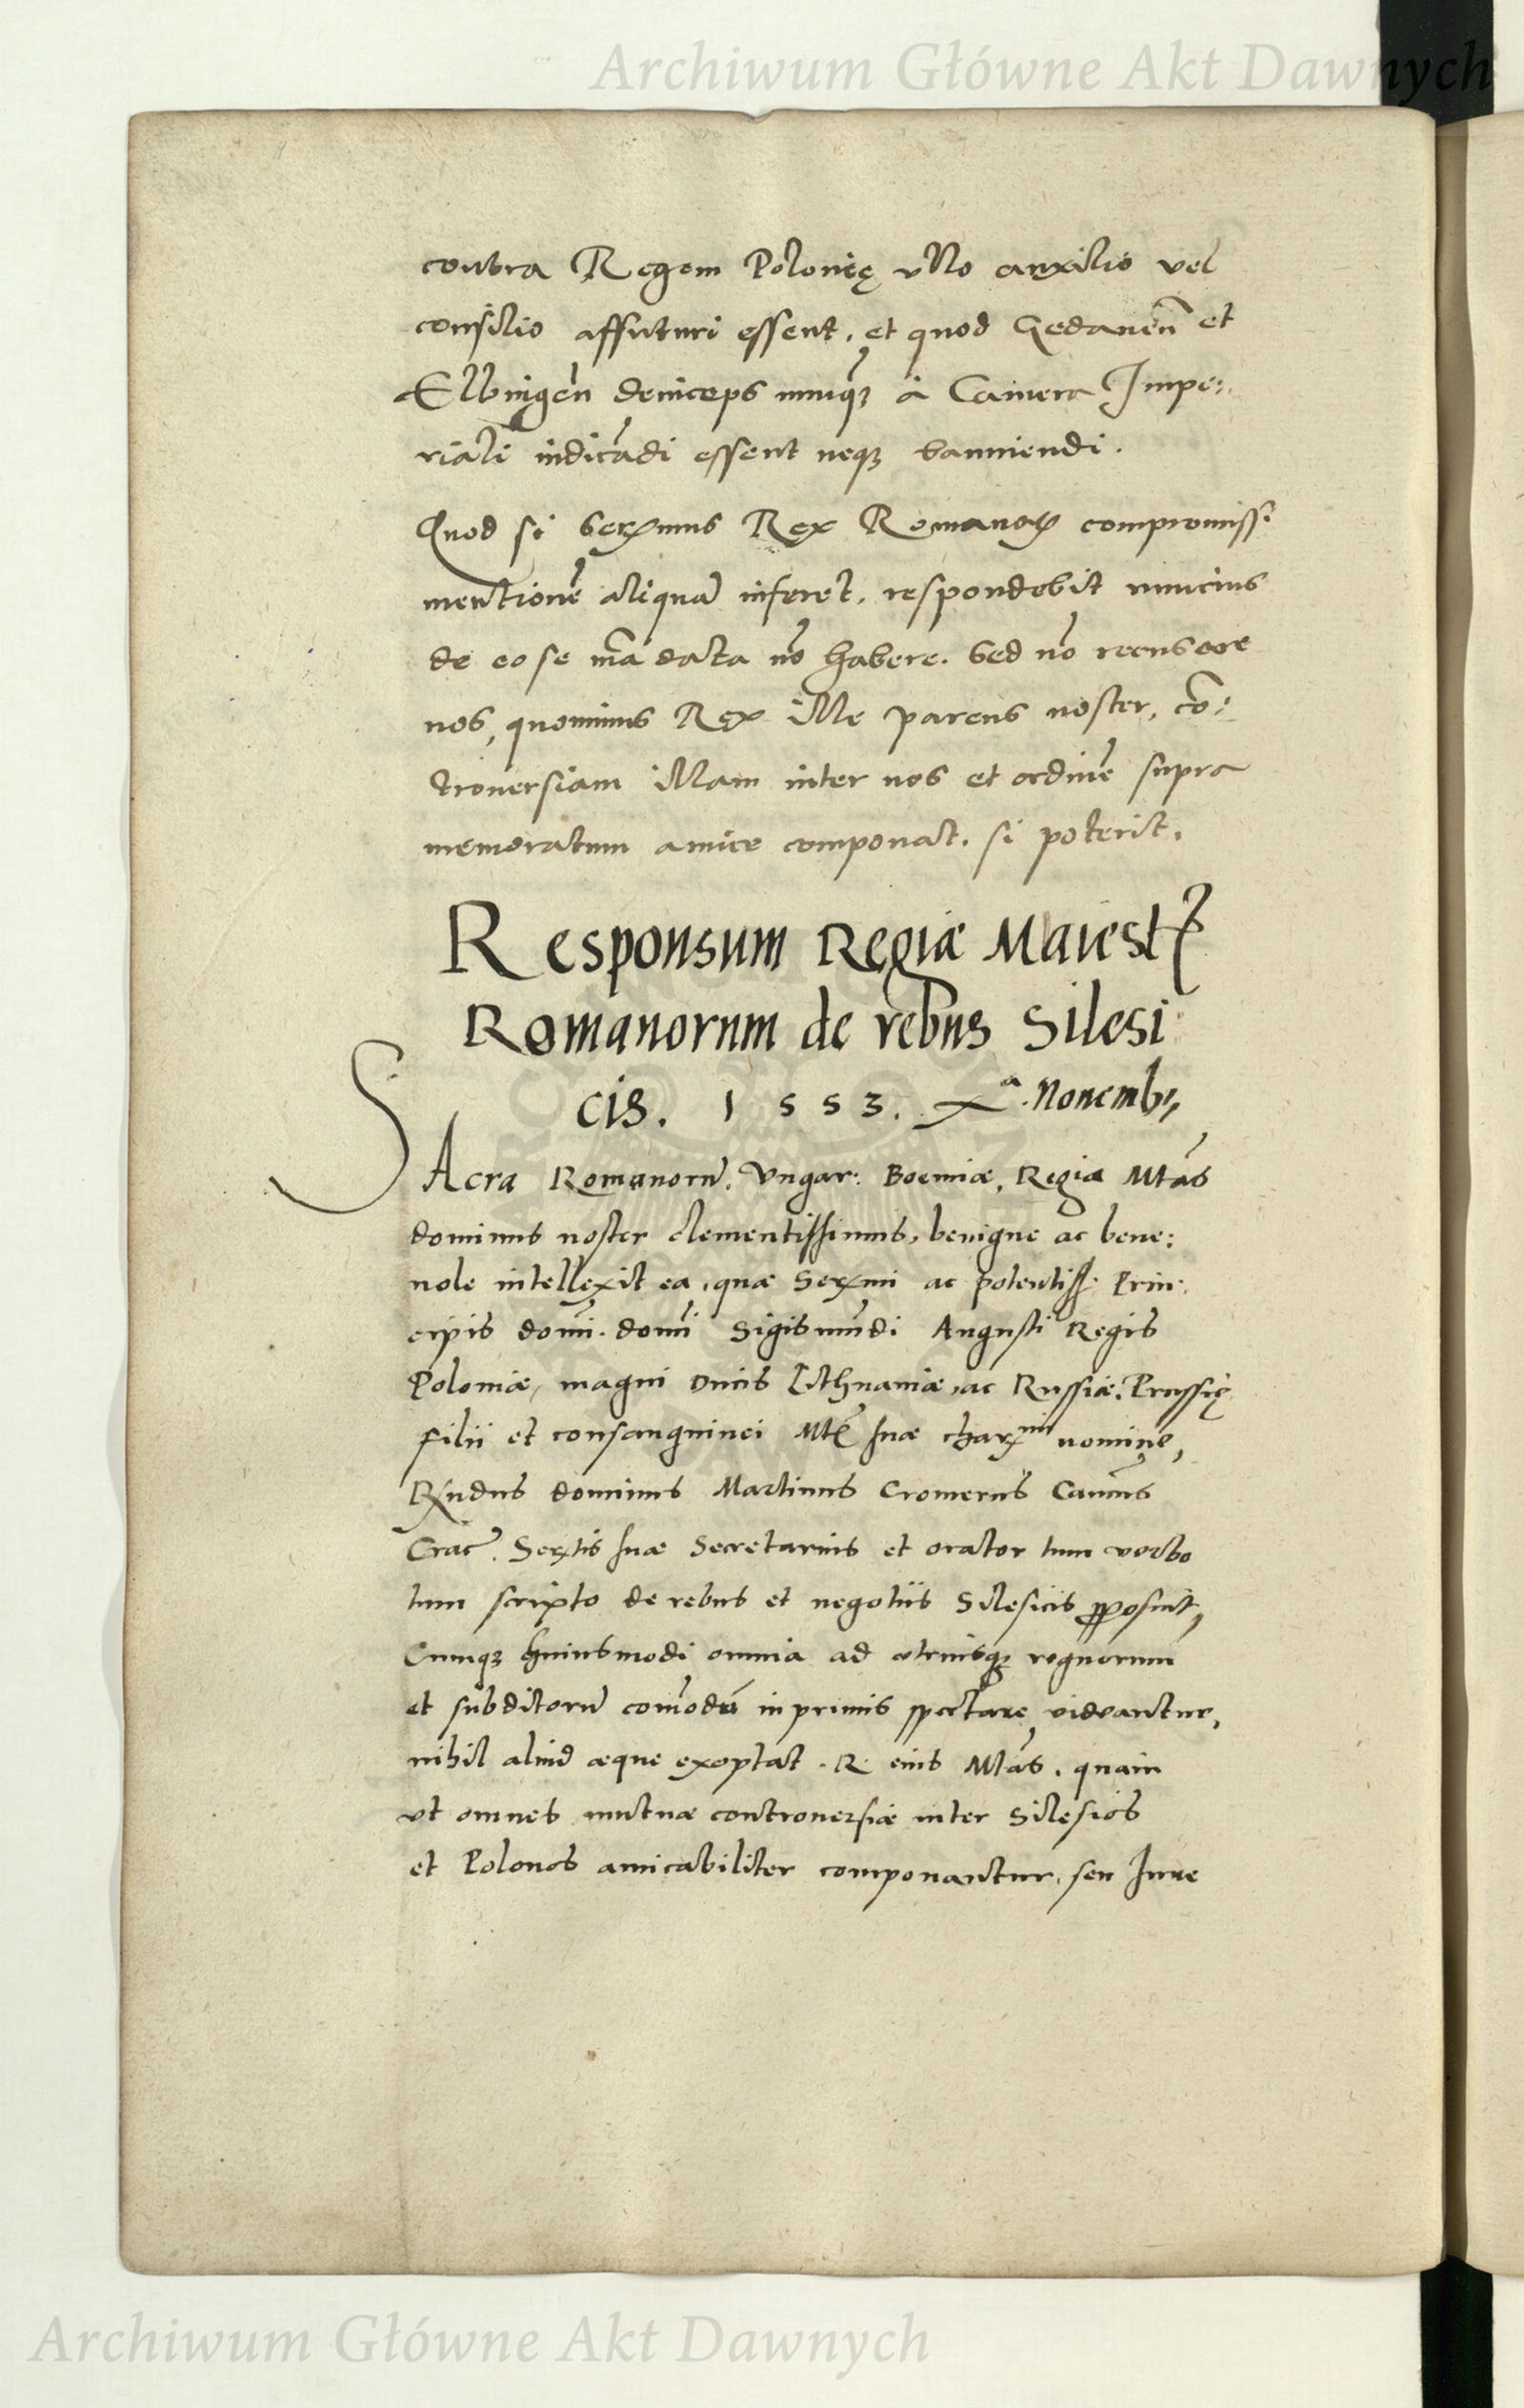 Archiwum Główne Akt Dawnych
contra Regem Polonię vllo auxilio vel
consilio affuturi essent, et quod Gedaneñ et
Elbingeñ deinceps nunqꝫ à Camera Impe:
riali indicãdi essent neqꝫ banniendi.
Quod si Serꝫmus Rex Romanoꝝ compromissi
mentionẽ aliquã inferet, respondebit nuncius
de eo se mãdata nõ habere. Sed nõ recusare
nos, quominus Rex ille parens noster, cõ:
trouersiam illam inter nos et ordinẽ supra
memoratum amice componat, si poterit.
Responsum Regiæ Maiestꝭ
Romanorum de rebus Silesi
cis. 1553. Xᵃ. Nouembꝭ
SAcra Romanorũ, Vngar: Boemiæ, Regia Mtãs
dominus noster clementissimus, benigne ac bene:
uole intellexit ea, quæ Serꝫmi ac potentiss: Prin:
cipis domĩ. domĩ Sigismũdi Augusti Regis
Poloniæ, magni Ducis Lithuaniæ, ac Russiæ, Prussię
filii et consanguinei Mtꝭ suæ charꝫᵐⁱ nomine,
Rꝫndus dominus Martinus Cromerus Canõcus
Crac̃. Serꝫtis suæ Secretarius et orator tum verbo
tum scripto de rebus et negotiis Silesicis ꝓposuit,
Cumqꝫ huiusmodi omnia ad vtriusqꝫ regnorum
et subditorũ com̃odũ inprimis spectare videantur,
nihil aliud æque exoptat. R. eius Mtãs, quam
vt omnes mutuæ controuersiæ inter Silesios
et Polonos amicabiliter componantur, seu Iure
Archiwum Główne Akt Dawnych